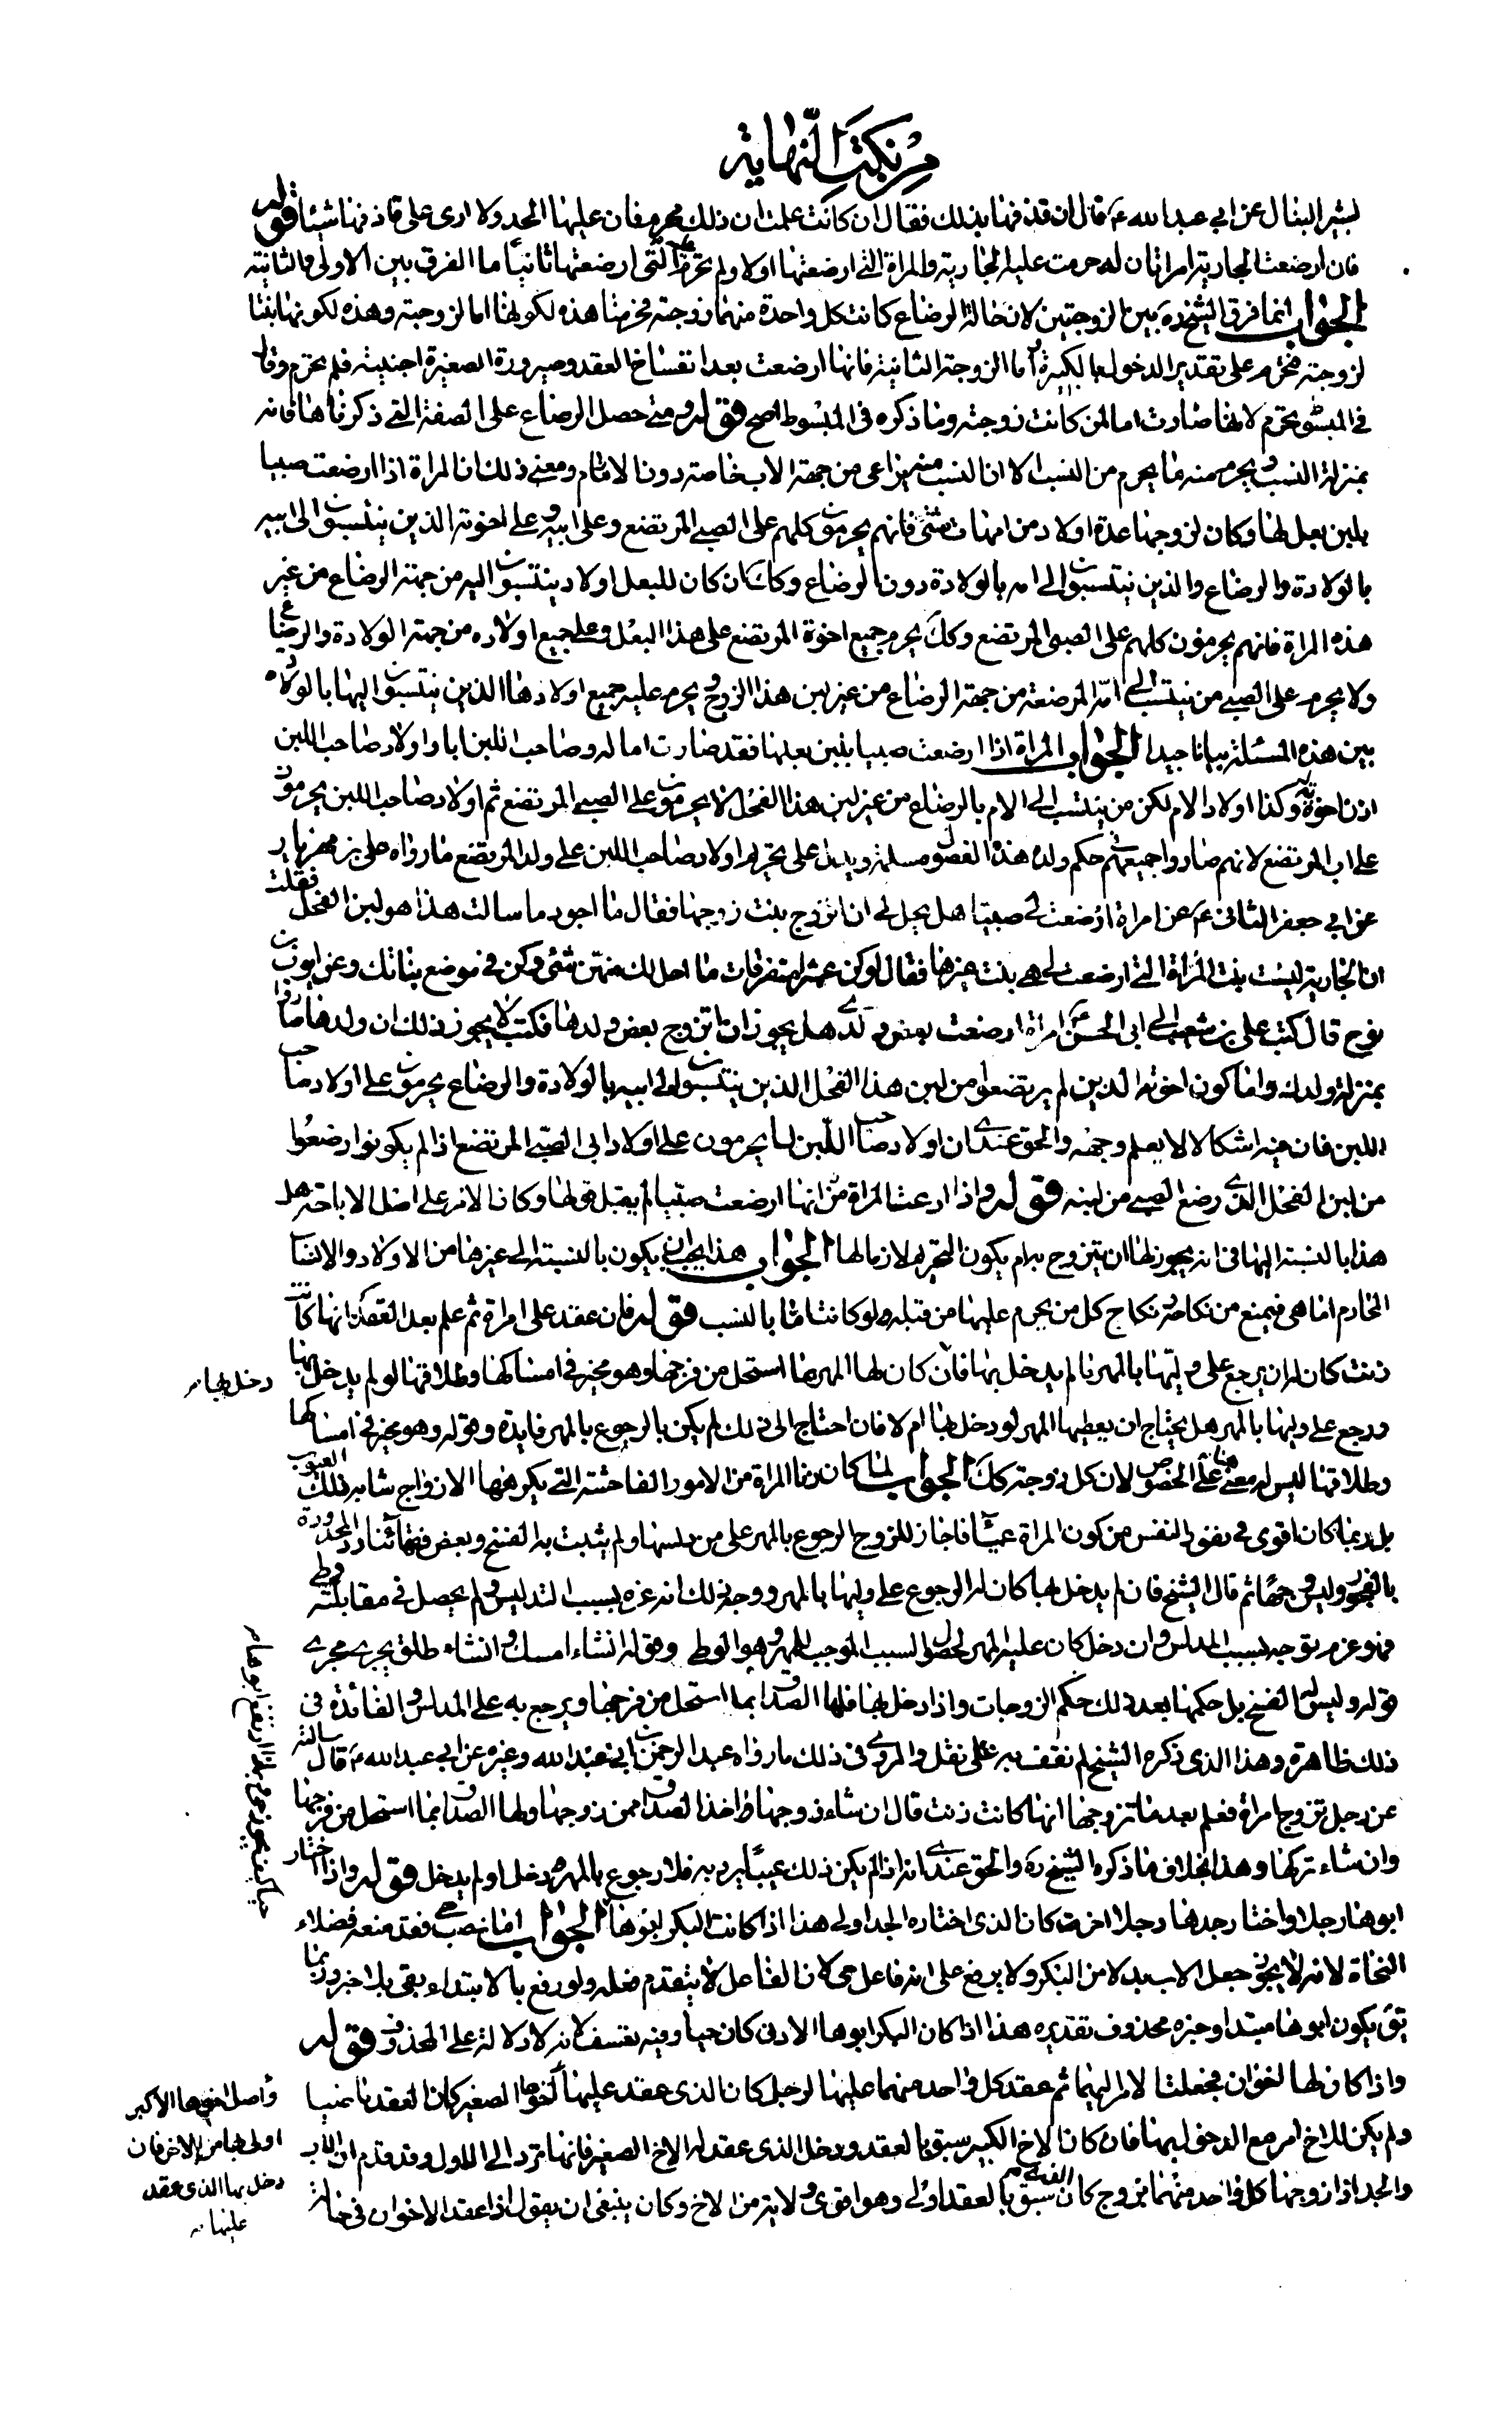 من نكت النهاية
بشير النبال عن ابي عبد الله ع قال ان قذفها بذلك فقال ان كانت علمت ان ذلك محرم فان عليها الحد ولا ارى على قاذفها شيئا قوله
فان ارضعت الجارية امراتان له حرمت عليه الجارية والمراة التي ارضعتها اولا ولم تحرم عليه التي ارضعتها ثانيا ما الفرق بين الاولى والثانية
الجواب انما فرق الشيخ ره بين الزوجتين لان حالة الرضاع كانت كل واحدة منهما زوجته فحرمتا هذه لكونها اما لزوجته وهذه لكونها بنتا
لزوجته فتحرم على تقدير الدخول بالكبيرة واما الزوجة الثانية فانها ارضعت بعد انفساخ العقد وصيرورة الصغيرة اجنبية فلم تحرم وقال
في المبسوط تحرم لانها صارت اما لمن كانت زوجته وما ذكره في المبسوط اصح قوله ومتى حصل الرضاع على الصفة التي ذكرناها فانه
بمنزلة النسب ويحرم منه ما يحرم من النسب الا ان النسب منه يراعى من جهة الاب خاصة دون الام ومعنى ذلك ان المراة اذا ارضعت صبيا
بلبن بعل لها وكان لزوجها عدة اولاد من امهات شتى فانهم يحرمون كلهم على الصبي المرتضع وعلى ابيه وعلى اخوته الذين ينتسبون الى ابيه
بالولادة والرضاع والذين ينتسبون الى امه بالولادة دون الرضاع وكك ان كان للبعل اولاد ينتسبون اليه من جهة الرضاع من غير
هذه المراة فانهم يحرمون كلهم على الصبي المرتضع وكك يحرم جميع اخوة المرتضع على هذا البعل وعلى جميع اولاده من جهة الولادة والرضاع
ولا يحرم على الصبي من ينتسب الى امه المرضعة من جهة الرضاع من غير لبن هذا الزوج ويحرم عليه جميع اولادها الذين ينتسبون اليها بالولادة
بين هذه المسئلة بيانا جيدا الجواب المراة اذا ارضعت صبيا بلبن بعلها فقد صارت اما له وصاحب اللبن ابا واولاد صاحب اللبن
اذن اخوته وكذا اولاد الام لكن من ينتسب الى الام بالرضاع من غير لبن هذا الفحل لا يحرمون على الصبي المرتضع ثم اولاد صاحب اللبن يحرمون
على اب المرتضع لانهم صاروا جميعهم في حكم ولده هذه الفصول مسلمة ويدل على تحريم اولاد صاحب اللبن على ولد المرتضع ما رواه علي بن مهزيار
عن ابي جعفر الثاني ع عن امراة ارضعت لي صبيا هل يحل لي ان اتزوج بنت زوجها فقال ما اجود ما سالت هذا هو لبن الفحل فقلت
ان الجارية ليست بنت المراة التي ارضعت لي هي بنت غيرها فقال لو كن عشرا متفرقات ما احل لك منهن شئ وكن في موضع بناتك وعن ايوب بن
نوح قال كتب علي بن شعيب الى ابي الحسن ع امراة ارضعت بعض ولدي هل يجوز ان اتزوج بعض ولدها فكتب لا يجوز ذلك ان ولدها صاروا
بمنزلة ولدك واما كون اخوته الذين لم يرتضعوا من لبن هذا الفحل الذين ينتسبون الى ابيه بالولادة والرضاع يحرمون على اولاد صاحب
اللبن فان فيه اشكالا لا يعلم وجهه والحق عندي ان اولاد صاحب اللبن لا يحرمون على اولاد ابي الصبي المرتضع اذا لم يكونوا رضعوا
من لبن الفحل الذي رضع الصبي من لبنه قوله واذا ادعت المراة انها ارضعت صبيا لم يقبل قولها وكان الامر على اصل الاباحة هل
هذا بالنسبة اليها في انه يجوز لها ان تتزوج به ام يكون التحريم لازما لها الجواب هذا يجب ان يكون بالنسبة الى غيرها من الاولاد والانساب
الخادم اما هي فيمنع من نكاحه ونكاح كل من يحرم عليها من قبله ولو كانت اما بالنسب قوله فان عقد على امراة ثم علم بعد العقد انها كانت
زنت كان له ان يرجع على وليها بالمهر ما لم يدخل بها فان كان لها المهر بما استحل من فرجها وهو مخير في امساكها وطلاقها لو لم يدخل بها
دخل بها
ورجع على وليها بالمهر هل يحتاج ان يعطيها المهر لو دخل بها ام لا فان احتاج الى ذلك لم يكن بالرجوع بالمهر فايدة وقوله وهو مخير في امساكها
وطلاقها ليس له معنى هنا على الخصوص لان كل زوجة كك الجواب لما كان زنا المراة من الامور الفاحشة التي يكرهها الازواج شابه ذلك العيوب
بل ربما كان اقوى في نفور النفس من كون المراة عمياء فاجاز للزوج الرجوع بالمهر على من دلسها ولم يثبت به الفسخ وبعض فقهائنا رد المحدودة
بالفجور وليس وجها ثم قال الشيخ فان لم يدخل بها كان له الرجوع على وليها بالمهر ووجه ذلك انه غره بسبب التدليس ولم يحصل في مقابلته وطي
فهو غرم توجه بسبب المدلس وان دخل كان عليه المهر لحصول السبب الموجب للمهر وهو الوطي وقوله ان شاء امسك وان شاء طلق يجري مجرى
قوله وليس له الفسخ بل حكمها بعد ذلك حكم الزوجات واذا دخل بها فلها الصداق بما استحل من فرجها ويرجع به على المدلس والفائدة في
ذلك ظاهرة وهذا الذي ذكره الشيخ لم نقف به على نقل والمروي في ذلك ما رواه عبد الرحمن بن ابي عبد الله وغيره عن ابي عبد الله ع قال سالته
عن رجل تزوج امراة فعلم بعد ما تزوجها انها كانت زنت قال ان شاء زوجها اخذ الصداق ممن زوجها ولها الصداق بما استحل من فرجها
وان شاء تركها وهذا بخلاف ما ذكره الشيخ ره والحق عندي انه اذا لم يكن ذلك عيبا يرد به فلا رجوع بالمهر دخل او لم يدخل قوله واذا اختار
ابوها رجلا واختار جدها رجلا اخر كان الذي اختاره الجد اولى هذا اذا كانت البكر ابوها الجواب اما نصب حي فقد منعه فضلاء
النحاة لانه لا يجوز جعل الاب بدلا من البكر ولا يرفع على انه فاعل حي لان الفاعل لا يتقدم فعله ولو رفع بالابتداء بقي بلا خبر وربما
يق يكون ابوها مبتدا وخبره محذوف تقديره هذا اذا كان البكر ابوها الادنى كان حيا وفيه تعسف لانه لا دلالة على المحذوف قوله
حيا كيف يجوز نصب حي بل لا ارتفع ابوها
واذا كان لها اخوان فجعلت الامر اليهما ثم عقد كل واحد منهما عليها لرجل كان الذي عقد عليها اخوها الصغير كان العقد ماضيا
واصل اخوها الاكبر
ولم يكن للاخ امر مع الدخول بها فان كان الاخ الكبير سبق بالعقد ودخل الذي عقد له الاخ الصغير فانها ترد الى الاول وقد قدم ان الاب
اولى بها من الاخر فان
دخل بها الذي عقد
عليها
والجد اذا زوجها كل واحد منهما بزوج كان الذي سبق بالعقد اولى وهو اقوى ولاية من الاخ وكان ينبغي ان يقول اذا عقد الاخوان في حالة